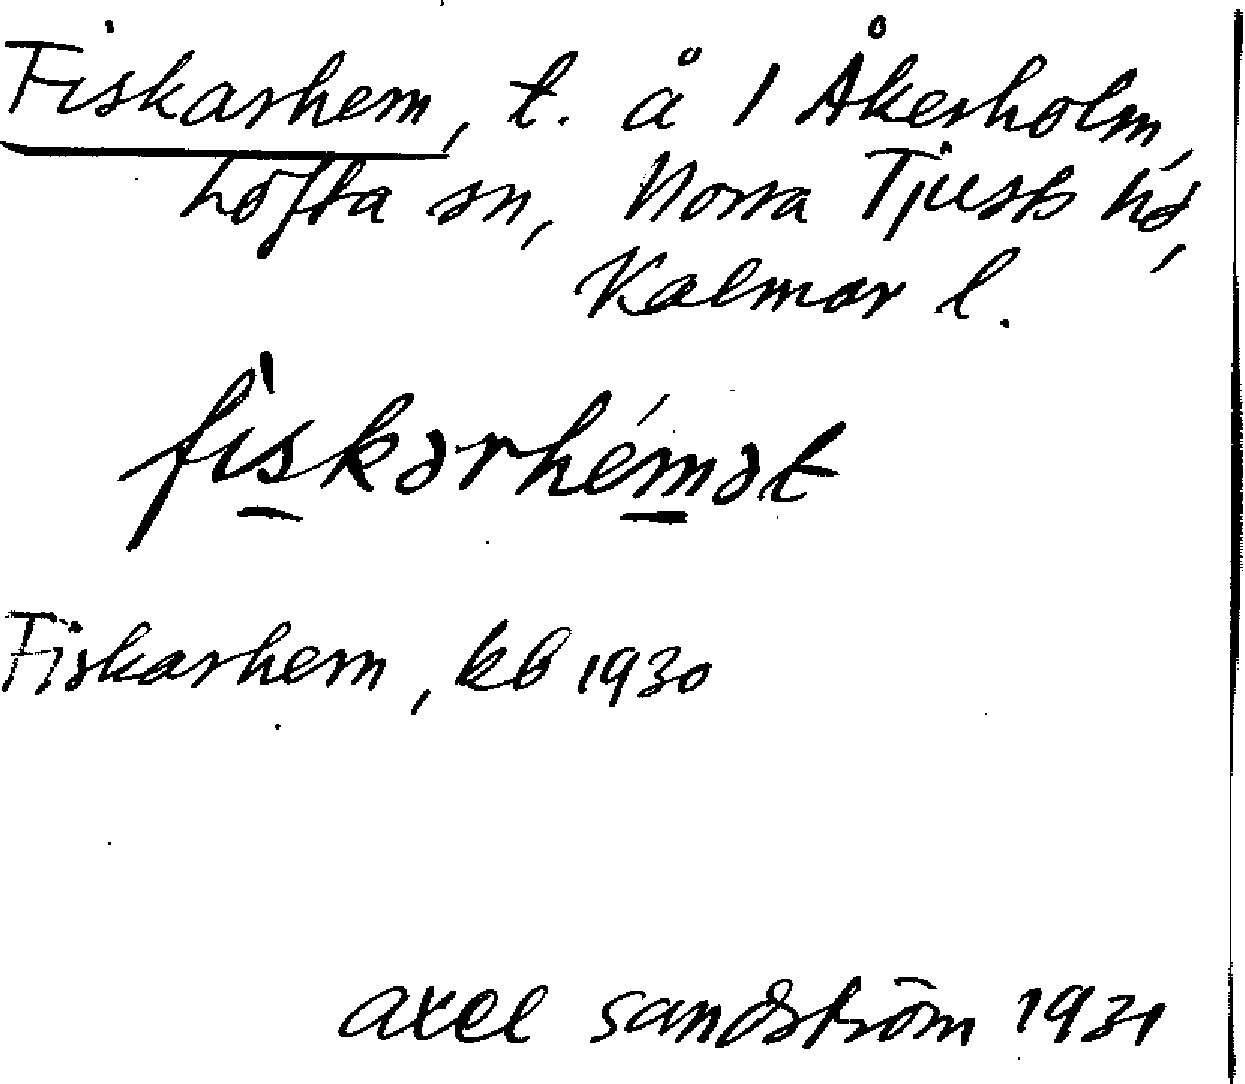 Fiskarhem, t. å 1 Åkerholm,
Lofta sn, Norra Tjusts hd,
Kalmar l.
fìskərhémət
Fiskarhem, kb 1930
Axel Sandström 1931